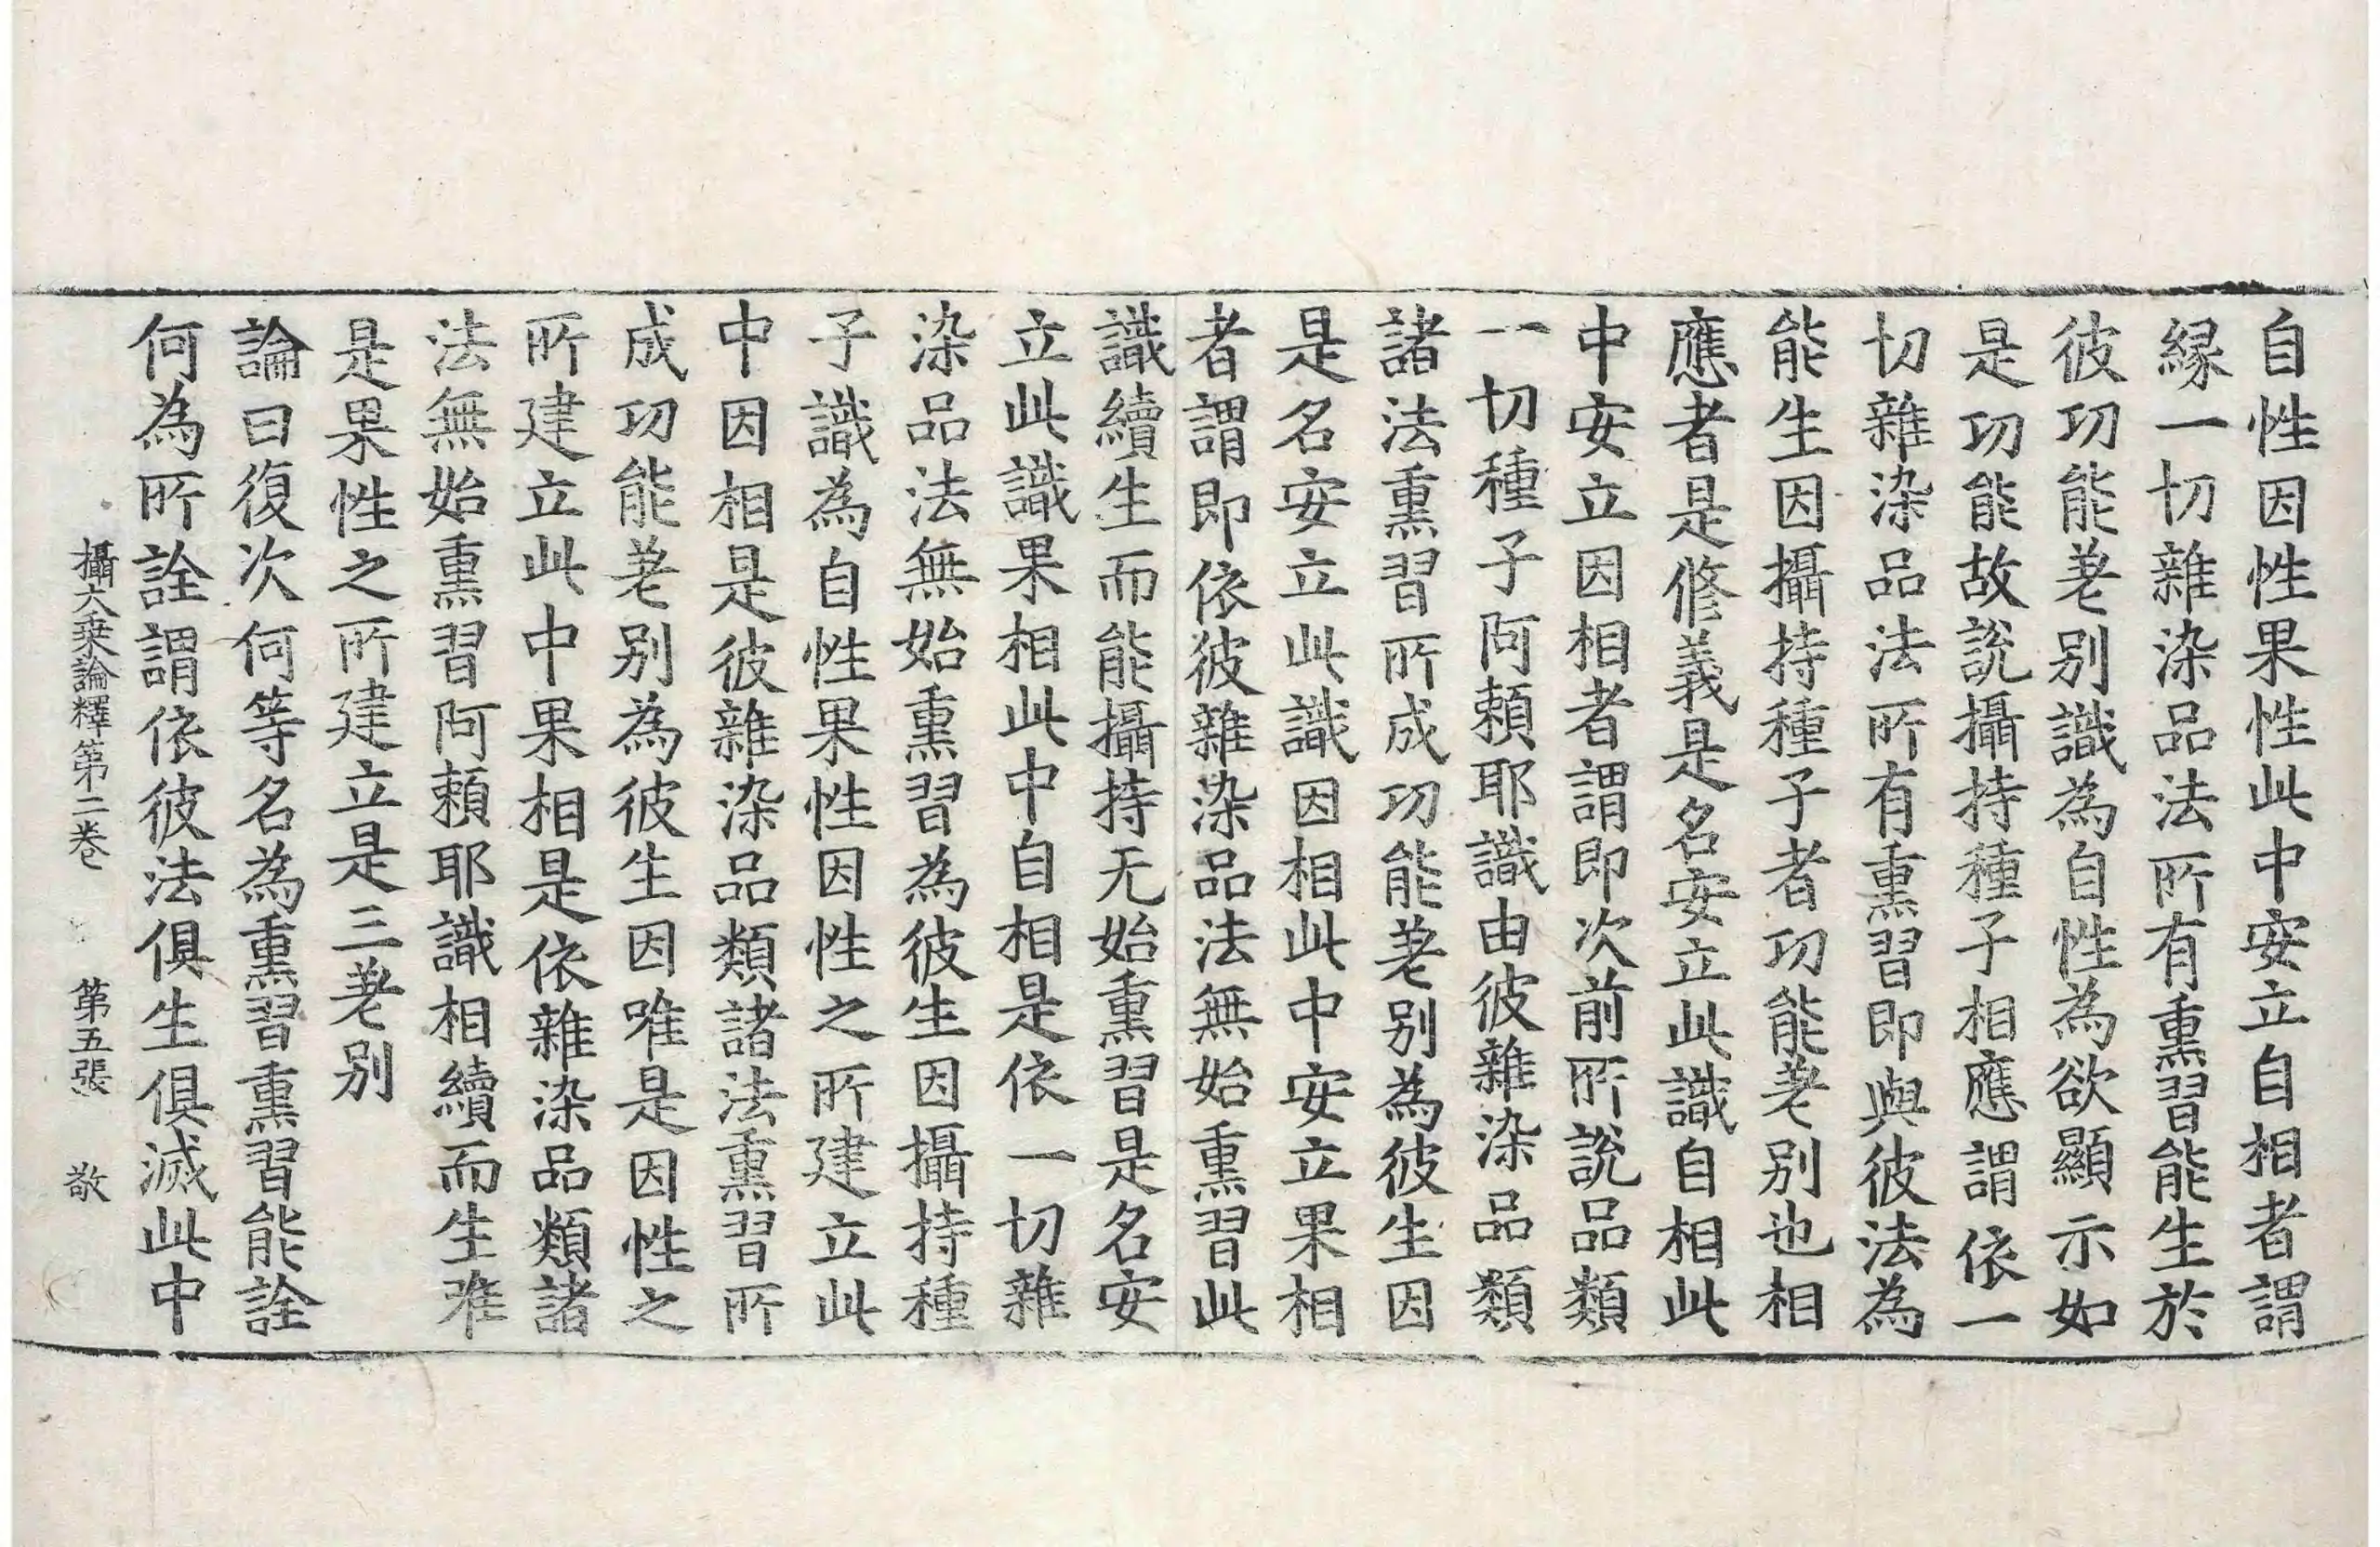 自性因性果性此中安立自相者謂
縁一切雜染品法所有熏習能生於
彼功能差别識為自性為欲顯示如
是功能故說攝持種子相應謂依一
切雜染品法所有熏習即與彼法為
能生因攝持種子者功能差别也相
應者是修義是名安立此識自相此
中安立因相者謂即次前所說品類
一切種子阿賴耶識由彼雜染品類
諸法熏習所成功能差别為彼生因
是名安立此識因相此中安立果相
者謂即依彼雜染品法無始熏習此
識續生而能攝持无始熏習是名安
立此識果相此中自相是依一切雜
染品法無始熏習為彼生因攝持種
子識為自性果性因性之所建立此
中因相是彼雜染品類諸法熏習所
成功能差别為彼生因唯是因性之
所建立此中果相是依雜染品類諸
法無始熏習阿賴耶識相續而生唯
是果性之所建立是三差别
論曰復次何等名為熏習熏習能詮
何為所詮謂依彼法俱生俱滅此中
攝大乗論釋第二卷 第五張 敬